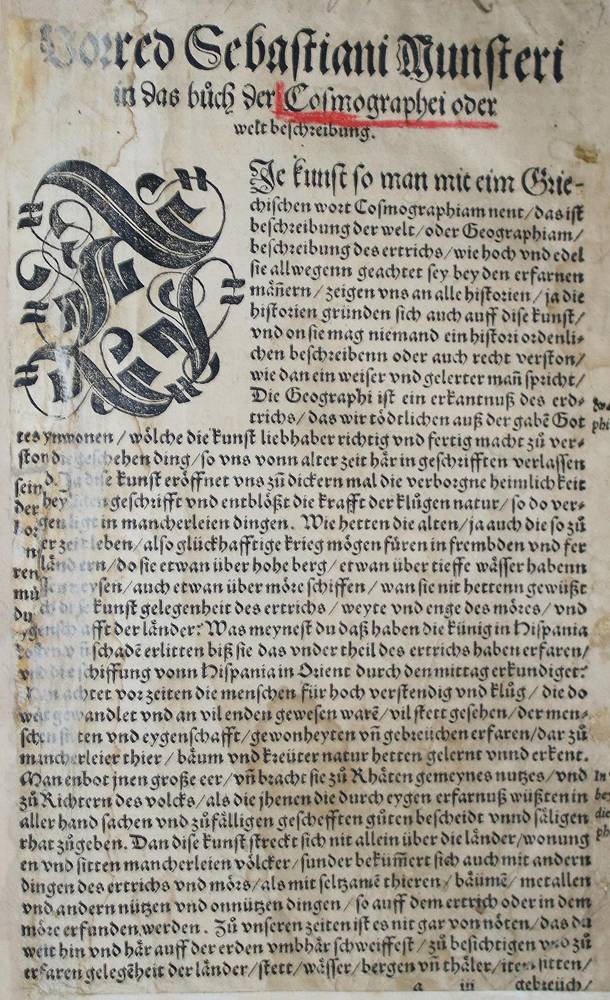 Vorred Sebastiani Munsteri
in das bůch der Cosmographei oder
welt beschreibung.
DJe kunst so man mit eim Grie-
chischen wort Cosmographiam nent / das ist
beschreibung der welt / oder Geographiam /
beschreibung des ertrichs / wie hoch vnd edel
sie allwegenn geachtet sey bey den erfarnen
mãñern / zeigen vns an alle historien / ja die
historien gründen sich auch auff dise kunst /
vnd on sie mag niemand ein histori ordenli-
chen beschreibenn oder auch recht verston /
wie dan ein weiser vnd gelerter mañ spricht /
Die Geographi ist ein erkantnuß des erd-
trichs / das wir tödtlichen auß der gabẽ Got
tes ynwonen / wölche die kunst liebhaber richtig vnd fertig macht zů ver-
ston die geschehen ding / so vns vonn alter zeit här in geschrifften verlassen
sein kunst eröffnet vns zů dickern mal die verborgne heimlichkeit
der geschrifft vnd entblößt die krafft der klůgen natur / so do ver-
in mancherleien dingen. Wie hetten die alten / ja auch die so zů
leben / also glückhafftige krieg mögen füren in frembden vnd fer
ren / do sie etwan über hohe berg / etwan über tieffe wässer habenn
můs / auch etwan über möre schiffen / wan sie nit hettenn gewüßt
du kunst gelegenheit des ertrichs / weyte vnd enge des möres / vnd
der länder? Was meynest du daß haben die künig in Hispania
schadẽ erlitten biß sie das vnder theil des ertrichs haben erfaren /
schiffung vonn Hispania in Orient durch den mittag erkundiget?
achtet vor zeiten die menschen für hoch verstendig vnd klůg / die do
weit gewandlet vnd an vil enden gewesen warẽ / vil stett gesehen / der men-
schen sitten vnd eygenschafft / gewonheyten vñ gebreüchen erfaren / dar zů
mancherleier thier / bäum vnd kreüter natur hetten gelernt vnnd erkent.
Man enbot jnen große eer / vñ bracht sie zů Rhäten gemeynes nutzes / vnd
zů Richtern des volcks / als die jhenen die durch eygen erfarnuß wüßten in
aller hand sachen vnd zůfälligen geschefften gůten bescheidt vnnd säligen
rhat zůgeben. Dan dise kunst streckt sich nit allein über die länder / wonung
en vnd sitten mancherleien völcker / sunder bekům̃ert sich auch mit andern
dingen des ertrichs vnd mörs / als mit seltzamẽ thieren / bäumẽ / metallen
vnd andern nützen vnd onnützen dingen / so auff dem ertrich oder in dem
möre erfunden werden. Zů vnseren zeiten ist es nit gar von nöten / das du
weit hin vnd här auff der erden vmbhär schweiffest / zů besichtigen vnd zů
erfaren gelegẽheit der länder / stett / wässer / bergen vñ thäler / item sitten /
a iij gebreüch /